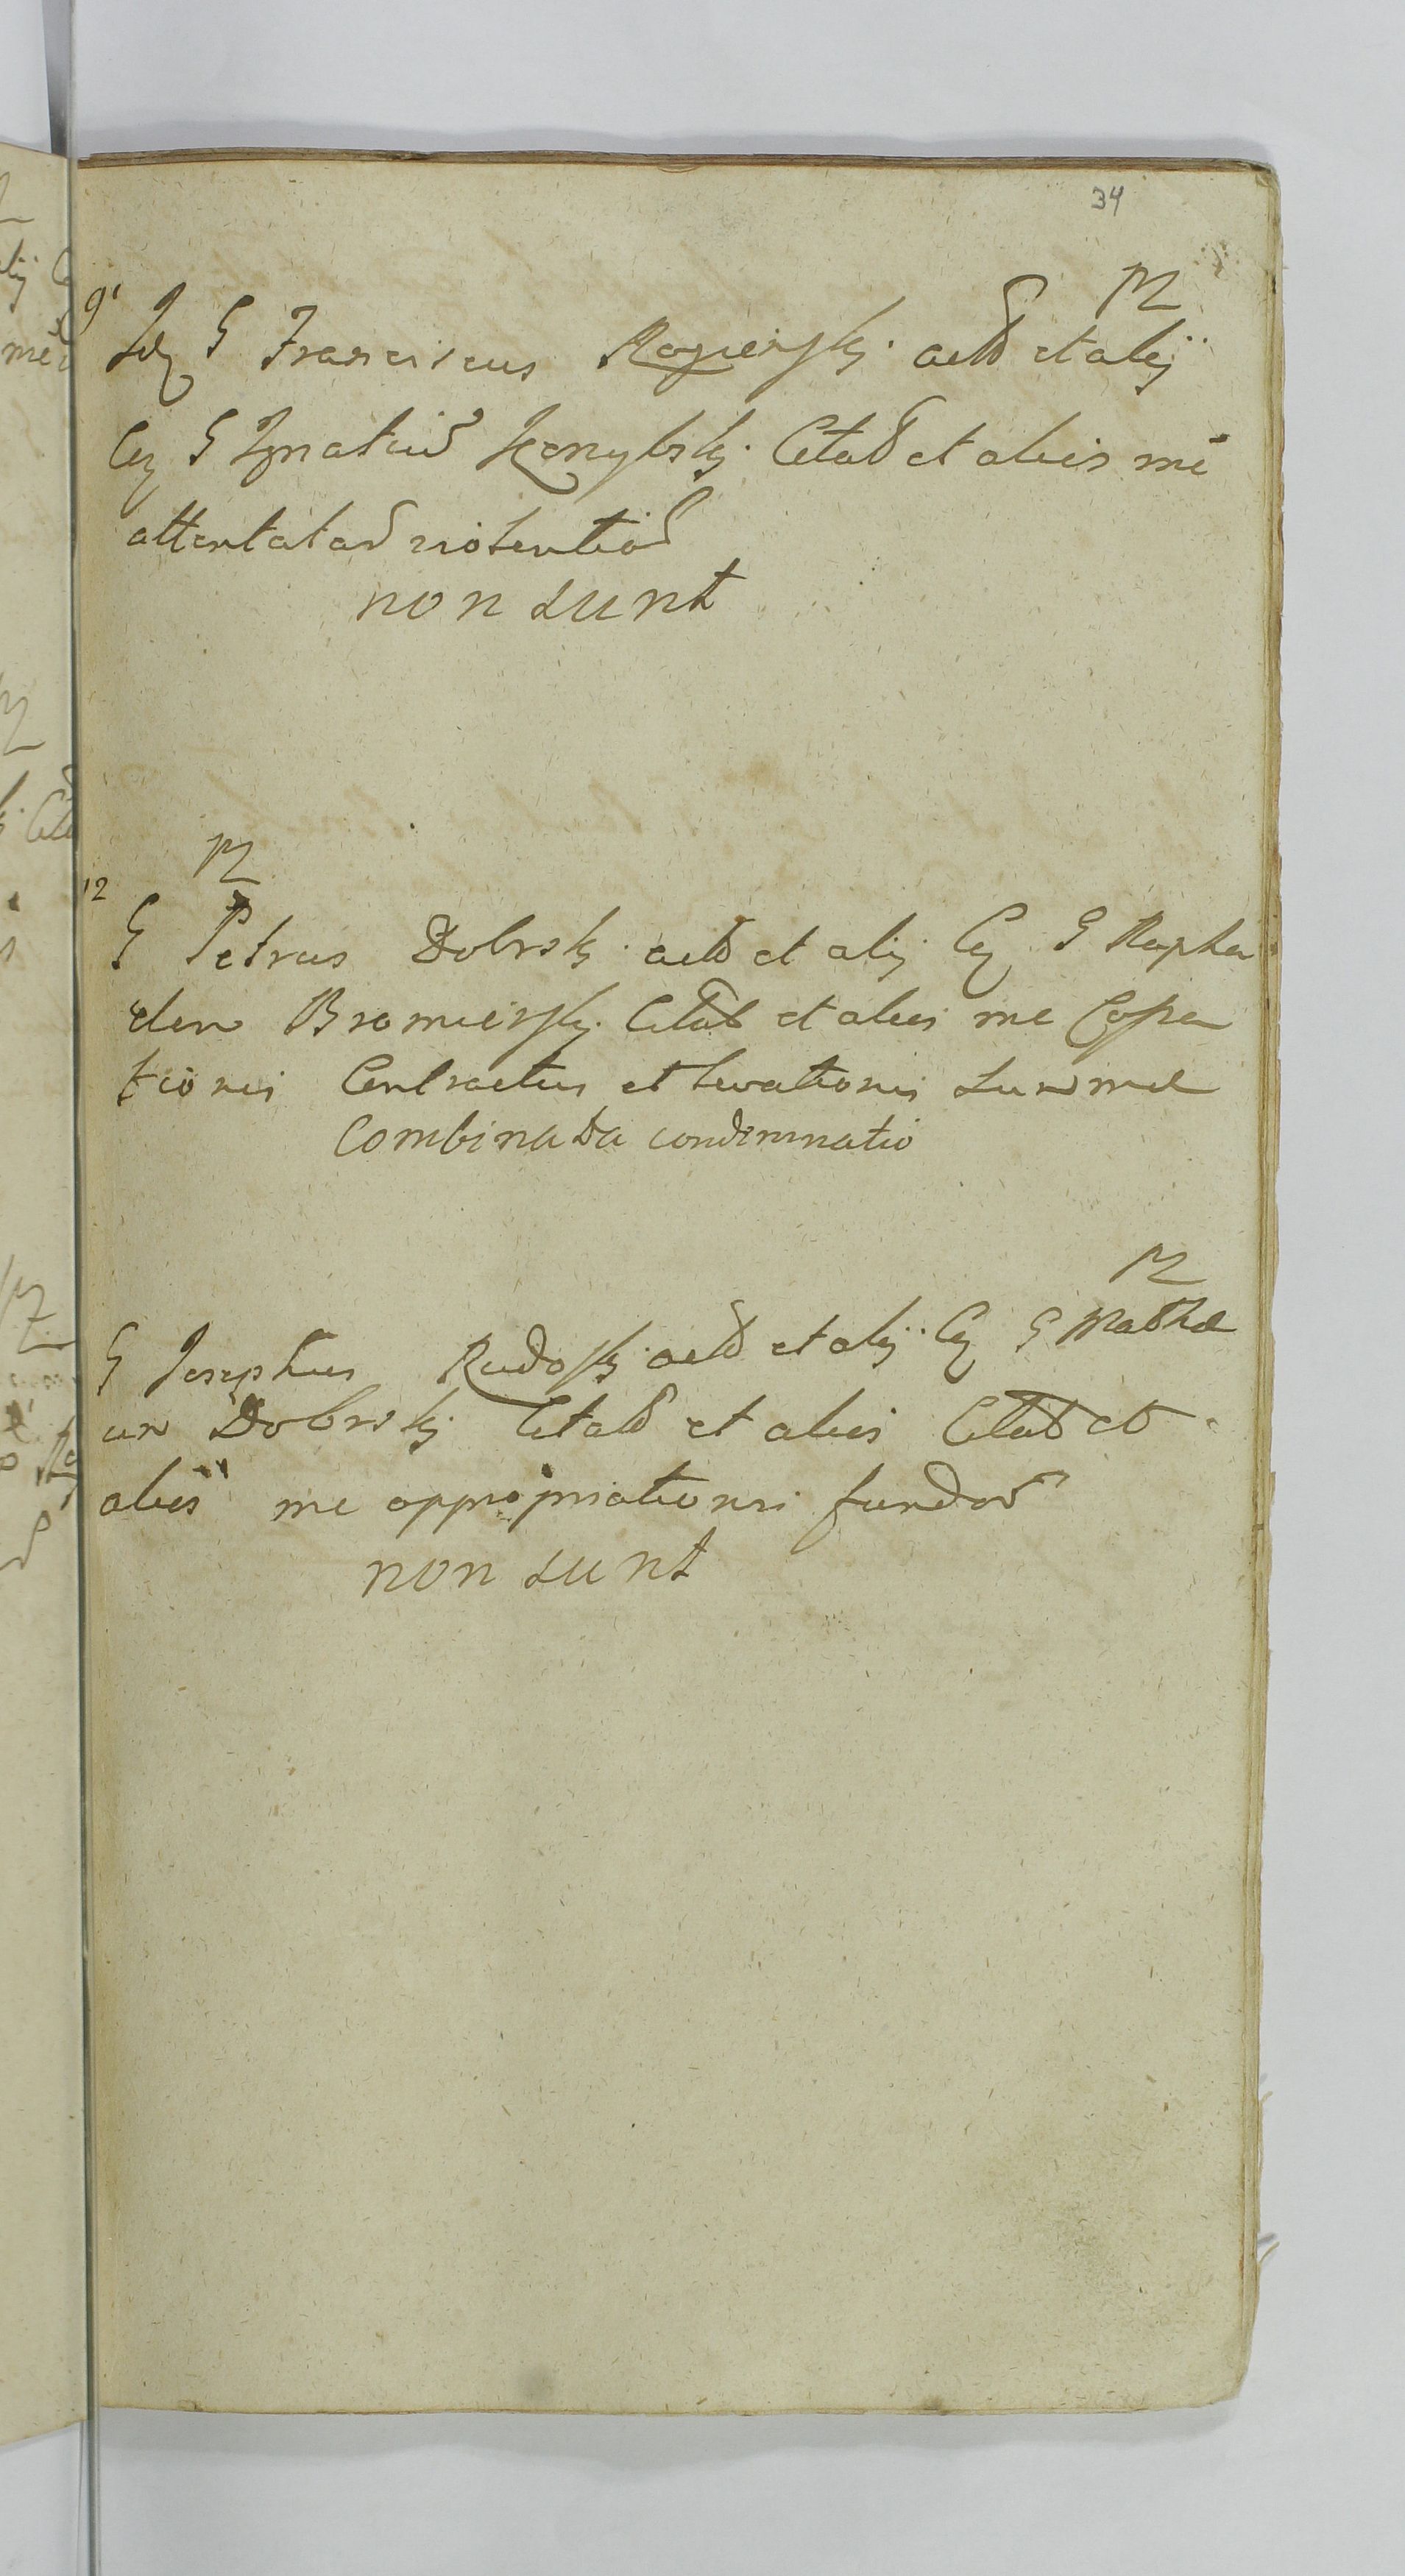 34
M
9
G Franciscus Rogierski actor et alij
G Ignatium Citat et aliis
attentatar violentiar
non sunt
M
12
G Petrus Dobrski actor et alij G Rapha
elem Bromierski Citat et aliis me
tionis Contractus et levationis summe
Combinata condemnatio
M
G Josephus Rudoski actor et alij G Mathae
um Dobrski Citat et aliis Citat et
aliis me appropriationis fundor
non sunt